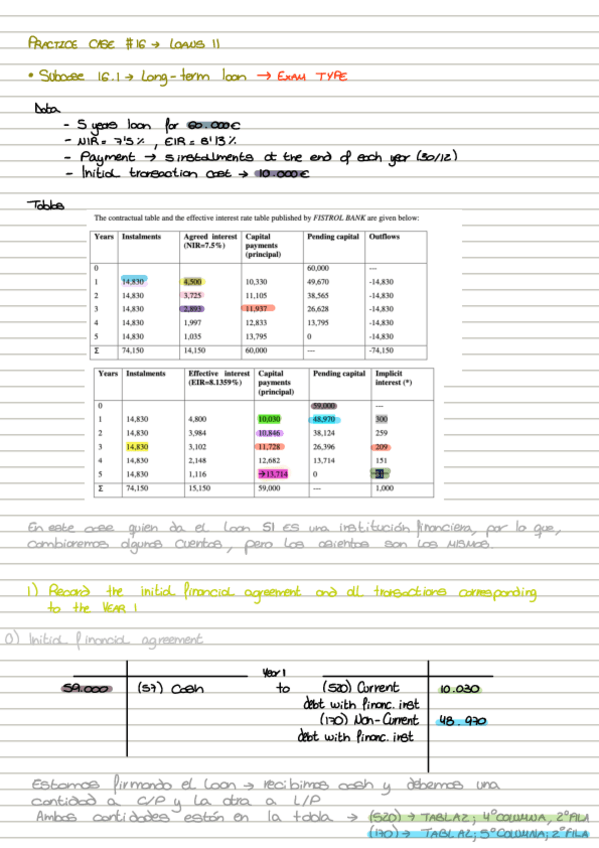 PRACTICE CASE #16 → LOANS II
• Subcase 16.1 → Long-term loan → EXAM TYPE
Data
- 5 years loan for 60.000€
- NIR = 7'5%, EIR = 8'13%
- Payment → 5 instalments at the end of each year (30/12)
- Initial transaction cost → 10.000€
Tables
The contractual table and the effective interest rate table published by FISTROL BANK are given below:
Years Instalments Agreed interest (NIR=7.5%) Capital payments (principal) Pending capital Outflows
0 60,000 ---
1 14,830 4,500 10,330 49,670 -14,830
2 14,830 3,725 11,105 38,565 -14,830
3 14,830 2,893 11,937 26,628 -14,830
4 14,830 1,997 12,833 13,795 -14,830
5 14,830 1,035 13,795 0 -14,830
Σ 74,150 14,150 60,000 --- -74,150
Years Instalments Effective interest (EIR=8.1359%) Capital payments (principal) Pending capital Implicit interest (*)
0 59,000 ---
1 14,830 4,800 10,030 48,970 300
2 14,830 3,984 10,846 38,124 259
3 14,830 3,102 11,728 26,396 209
4 14,830 2,148 12,682 13,714 151
5 14,830 1,116 →13,714 0
Σ 74,150 15,150 59,000 --- 1,000
En este case quien da el loan SI ES una institución financiera, por lo que,
cambiaremos algunas cuentas, pero los asientos son los MISMOS.
1) Record the initial financial agreement and all transactions corresponding
to the YEAR 1
0) Initial financial agreement
Year 1
59.000 (57) Cash to (520) Current 10.030
debt with financ. inst
(170) Non-Current 48.970
debt with financ. inst
Estamos firmando el loan → recibimos cash y debemos una
cantidad a C/P y la otra a L/P
Ambas cantidades están en la tabla → (520) → TABLA 2; 4º COLUMNA, 2º FILA
(170) → TABLA 2; 5º COLUMNA; 2º FILA